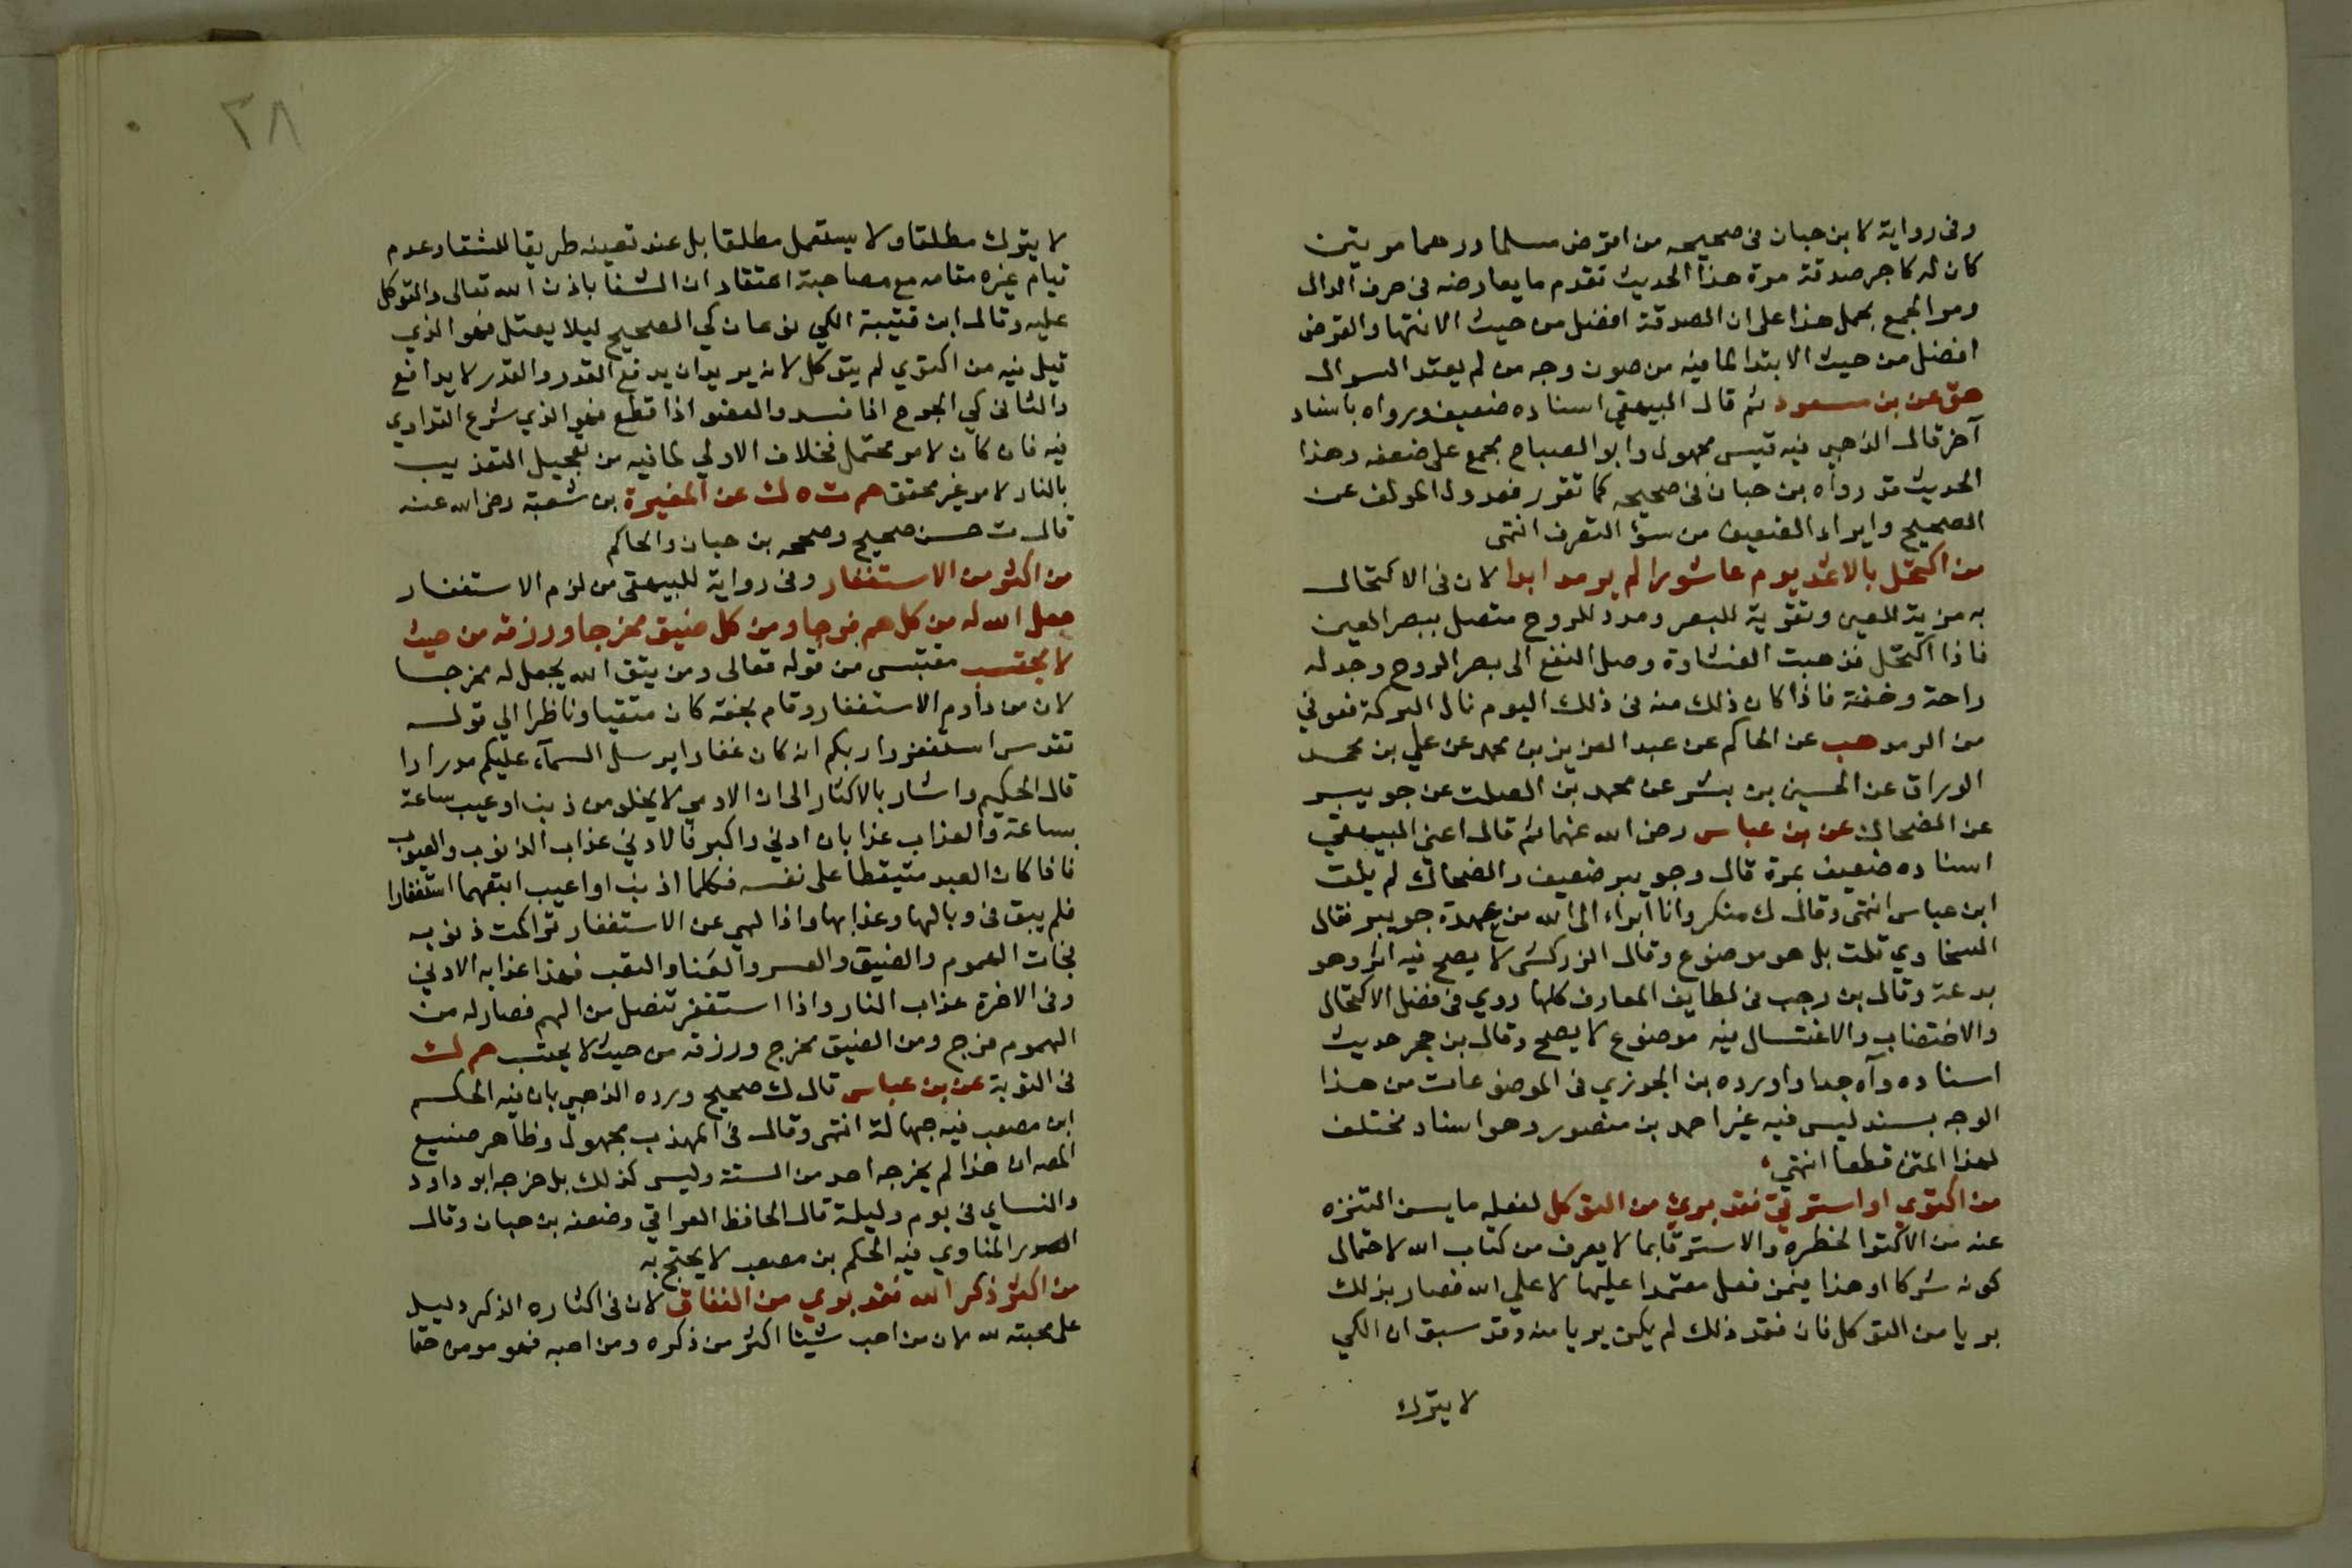 وفى رواية لابن حبان فى صحيحه من اقرض مسلما درهما مرتين
كان له كاجر صدقة مرة هذا الحديث تقدم ما يعارضه فى حرف الدال
ومر الجمع بحمل هذا على ان الصدقة افضل من حيث الانتها والقرض
افضل من حيث الابتدا لما فيه من صون وجه من لم يعتد السوال
هق عن بن مسعود ثم قال البيهقي اسناده ضعيف ورواه باسناد
آخر قال الذهبي فيه قيس مجهول وابو الصباح مجمع على ضعفه وهذا
الحديث قد رواه بن حبان فى صحيحه كما تقرر فعدول المولف عن
الصحيح وايراد الضعيف من سوؤ التصرف انتهى
من اكتحل بالاثمد يوم عاشورا لم يرمد ابدا لان فى الاكتحال
به مزية للعين وتقوية للبصر ومدد للروح متصل ببصر العين
فاذا اكتحل فذهبت الغشاوة وصل النفع الى بصر الروح وجد له
راحة وخفة فاذا كان ذلك منه فى ذلك اليوم نال البركة فعوفي
من الرمد هب عن الحاكم عن عبد العزيز بن محمد عن علي بن محمد
الوراق عن الحسين بن بشر عن محمد بن الصلت عن جويبر
عن الضحاك عن بن عباس رضى الله عنهما ثم قال اعني البيهقي
اسناده ضعيف بمرة قال وجويبر ضعيف والضحاك لم يلق
ابن عباس انتهى وقال ك منكر وانا ابراء الى الله من عهدة جويبر فقال
السخاوي قلت بل هو موضوع وقال الزركشى لا يصح فيه اثر وهو
بدعة وقال بن رجب فى لطايف المعارف كلها روي فى فضل الاكتحال
والاختضاب والاغتسال فيه موضوع لا يصح وقال بن حجر حديث
اسناده واه جدا واورده بن الجوزي فى الموضوعات من هذا
الوجه بسند ليس فيه غير احمد بن منصور وهو اسناد مختلف
لهذا المتن قطعا انتهي
من اكتوي او استرقي فقد برئ من التوكل لفعله ما يسن التنزه
عنه من الاكتوا لخطره والاسترقا بما لا يعرف من كتاب الله لاحتمال
كونه شركا او هذا فيمن فعل معتمدا عليها لا علي الله فصار بذلك
بريا من التوكل فان فقد ذلك لم يكن بريا منه وقد سبق ان الكي
لا يترك
٣٨
لا يترك مطلقا ولا يستعمل مطلقا بل عند تعينه طريقا للشفا وعدم
قيام غيره مقامه مع مصاحبة اعتقاد ان الشفا باذن الله تعالى والتوكل
عليه وقال ابن قتيبة الكي نوعان كي الصحيح ليلا يعتل فهو الذي
قيل فيه من اكتوي لم يتوكل لانه يريد ان يدفع القدر والقدر لا يدافع
والثانى كي الجرح اذا فسد والعضو اذا قطع فهو الذي شرع التداوي
فيه فان كان لامر محتمل فخلاف الاولي لما فيه من تعجيل التعذيب
بالنار لامر غير محقق حم ت ه ك عن المغيرة بن شعبة رضى الله عنه
قال ت حسن صحيح وصححه بن حبان والحاكم
من اكثر من الاستغفار وفى رواية للبيهقى من لزم الاستغفار
جعل الله له من كل هم فرجا ومن كل ضيق مخرجا ورزقه من حيث
لا يحتسب مقتبس من قوله تعالى ومن يتق الله يجعل له مخرجا
لان من داوم الاستغفار وقام بحقه كان متقيا وناظرا الي قوله
تقدس استغفروا ربكم انه كان غفارا يرسل السمآء عليكم مدرارا
قال الحكيم واشار بالاكثار الى ان الادمي لا يخلو من ذنب او عيب ساعة
بساعة والعذاب عذابان ادني واكبر فالادني عذاب الذنوب والعيوب
فاذا كان العبد متيقظا على نفسه فكلما اذنب او اعيب اتبعهما استغفارا
فلم يبق فى وبالها وعذابها واذا لهي عن الاستغفار تراكمت ذنوبه
فجات الهموم والضيق والعسر والعنا والتعب فهذا عذابه الادني
وفى الاخرة عذاب النار واذا استغفر تنصل من الهم فصار له من
الهموم فرج ومن الضيق مخرج ورزقه من حيث لا يحتسب حم ك
فى التوبة عن بن عباس قال ك صحيح ورده الذهبي بان فيه الحكم
ابن مصعب فيه جهالة انتهى وقال فى المهذب مجهول وظاهر صنيع
المص ان هذا لم يخرجه احد من الستة وليس كذلك بل خرجه ابو داود
والنساي فى يوم وليلة قال الحافظ العراقي وضعفه بن حبان وقال
الصدر المناوي فيه الحكم بن مصعب لا يحتج به
من اكثر ذكر الله فقد بري من النفاق لان فى اكثاره الذكر دليل
على محبته لله لان من احب شيئا اكثر من ذكره ومن احبه فهو مومن حقا